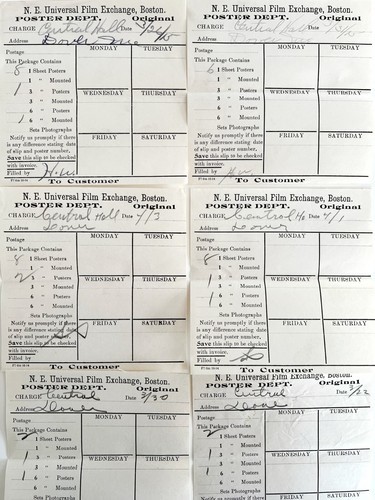 N. E. Universal Film Exchange, Boston.
POSTER DEPT. Original
CHARGE Central Hall Date 3/24/15
Address Dover
Postage MONDAY TUESDAY
This Package Contains
8 1 Sheet Posters
1 " Mounted
1 3 " Posters WEDNESDAY THURSDAY
3 " Mounted
1 6 " Posters
6 " Mounted
Sets Photographs
Notify us promptly if there FRIDAY SATURDAY
is any difference stating date
of slip and poster number,
Save this slip to be checked
with invoice.
Filled by
To Customer
N. E. Universal Film Exchange, Boston.
POSTER DEPT. Original
CHARGE Central Date
Address
Postage MONDAY TUESDAY
This Package Contains
6 1 Sheet Posters
1 " Mounted
1 3 " Posters WEDNESDAY THURSDAY
3 " Mounted
6 " Posters
6 " Mounted
Sets Photographs
Notify us promptly if there FRIDAY SATURDAY
is any difference stating date
of slip and poster number,
Save this slip to be checked
with invoice.
Filled by
To Customer
N. E. Universal Film Exchange, Boston.
POSTER DEPT. Original
CHARGE Central Hall Date 4/3
Address Dover
Postage MONDAY TUESDAY
This Package Contains
8 1 Sheet Posters
1 " Mounted
2 3 " Posters WEDNESDAY THURSDAY
3 " Mounted
6 " Posters
6 " Mounted
Sets Photographs
Notify us promptly if there FRIDAY SATURDAY
is any difference stating date
of slip and poster number,
Save this slip to be checked
with invoice.
Filled by
To Customer
N. E. Universal Film Exchange, Boston.
POSTER DEPT. Original
CHARGE Central Ha Date 4/1
Address Dover
Postage MONDAY TUESDAY
This Package Contains
8 1 Sheet Posters
1 " Mounted
1 3 " Posters WEDNESDAY THURSDAY
3 " Mounted
1 6 " Posters
6 " Mounted
Sets Photographs
Notify us promptly if there FRIDAY SATURDAY
is any difference stating date
of slip and poster number,
Save this slip to be checked
with invoice.
Filled by
To Customer
N. E. Universal Film Exchange, Boston.
POSTER DEPT. Original
CHARGE Central Date 3/30
Address Dover
Postage MONDAY TUESDAY
This Package Contains
2 1 Sheet Posters
1 " Mounted
1 3 " Posters WEDNESDAY THURSDAY
3 " Mounted
1 6 " Posters
6 " Mounted
Sets Photographs
N. E. Universal Film Exchange, Boston.
POSTER DEPT. Original
CHARGE Central Date 3/22
Address Dover
Postage MONDAY TUESDAY
This Package Contains
2 1 Sheet Posters
1 " Mounted
1 3 " Posters WEDNESDAY THURSDAY
3 " Mounted
1 6 " Posters
6 " Mounted
Sets Photographs